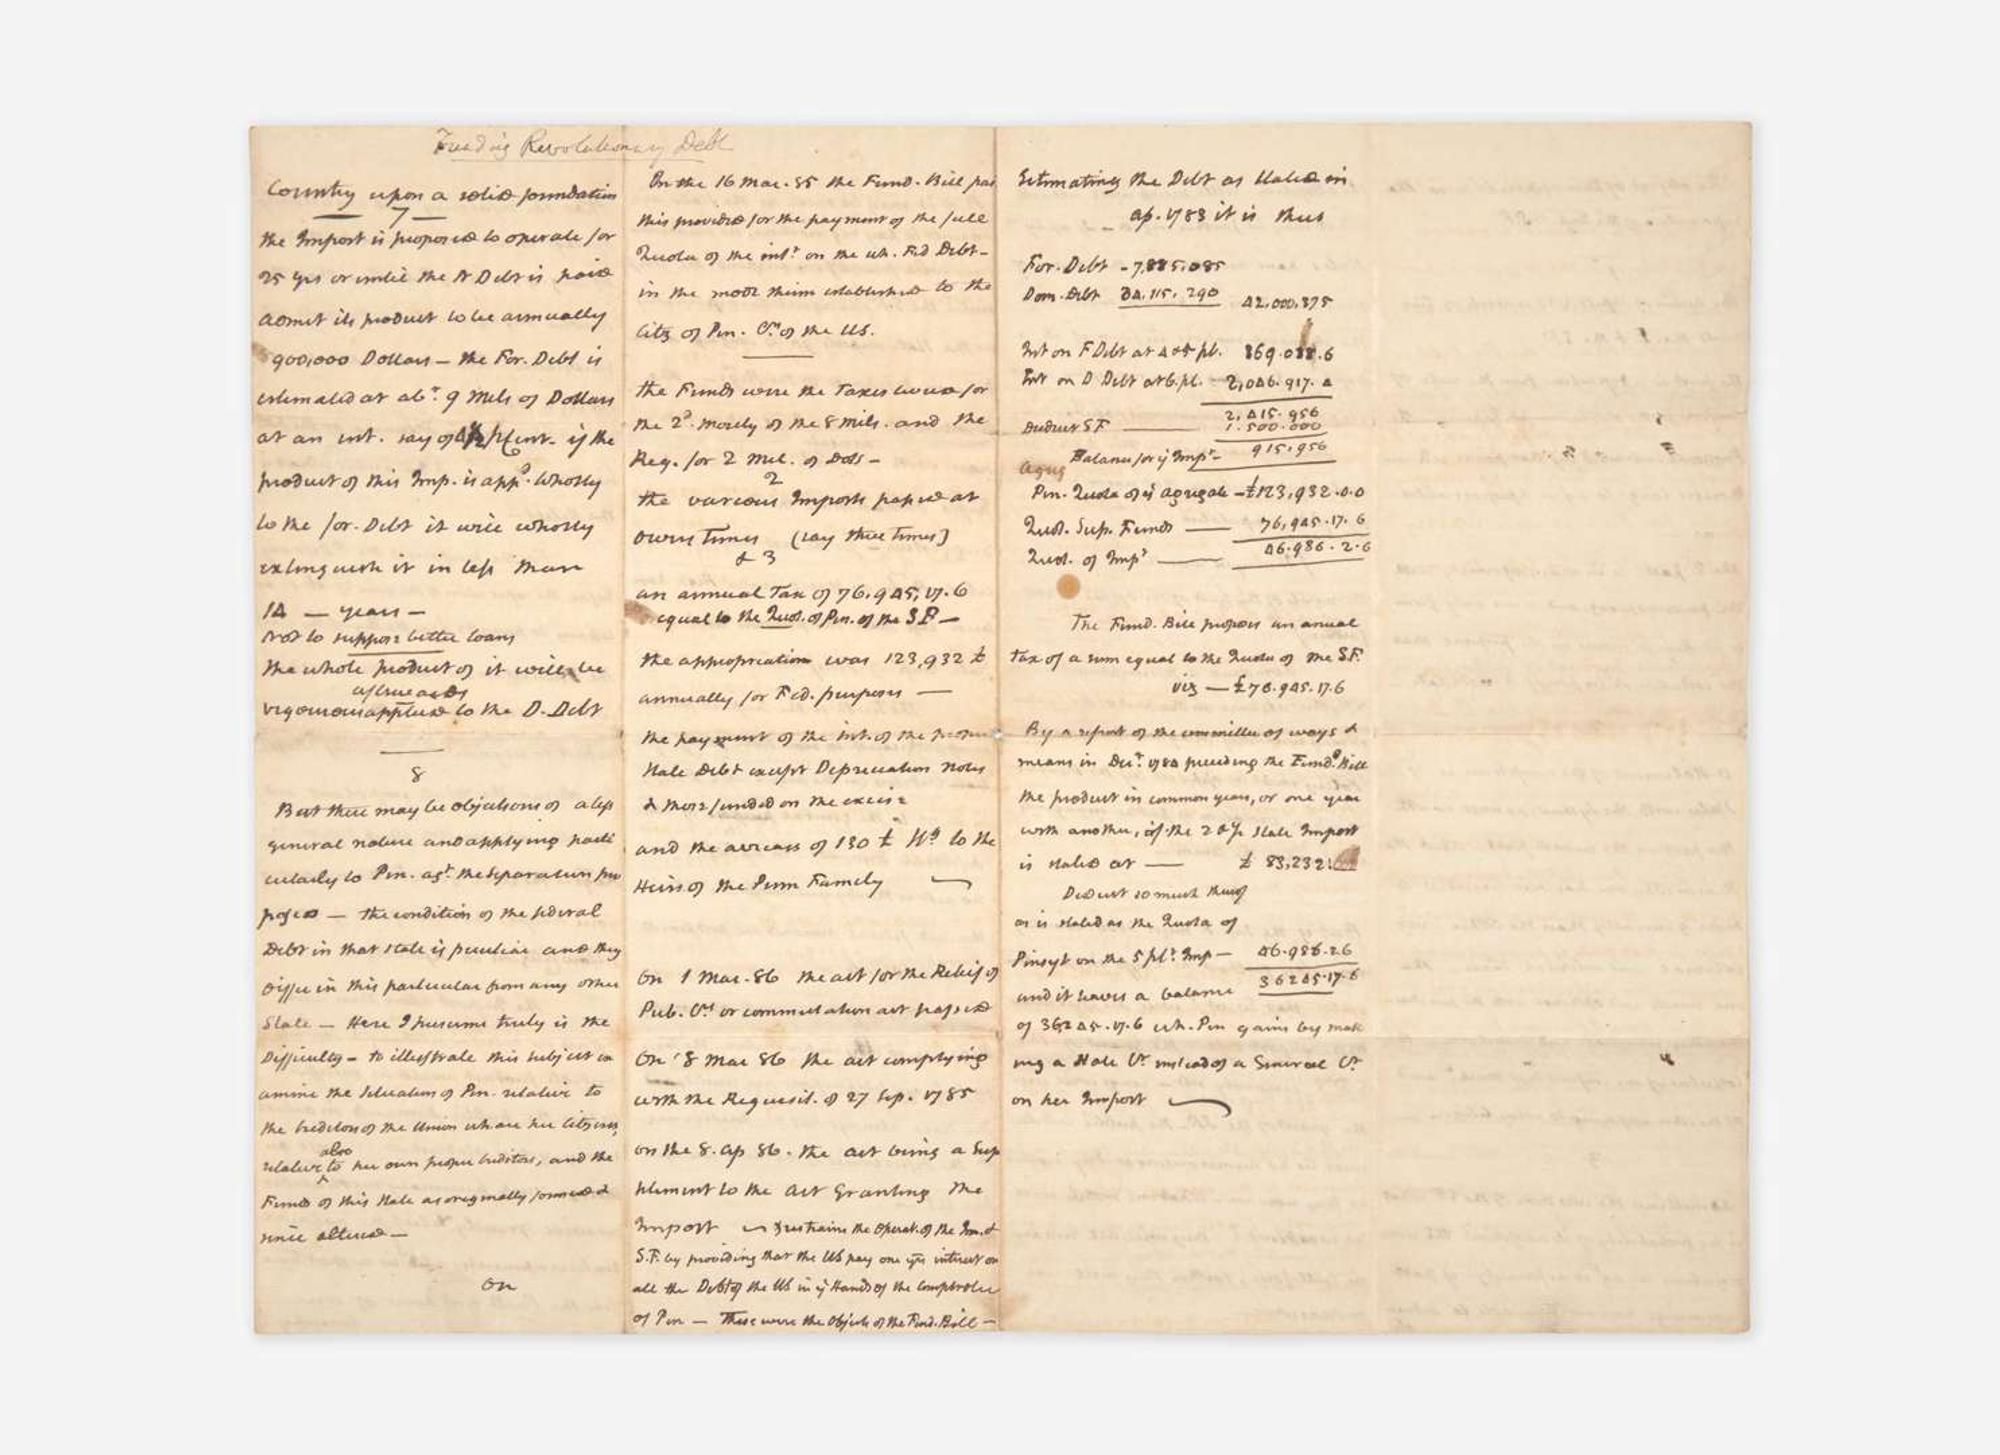 Funding Revolutionary Debt
Country upon a solid foundation
7
the Impost is proposed to operate for
25 yrs or until the Debt is paid
admit its product to be annually
900,000 Dollars — the For. Debt is
estimated at abt. 9 Mils of Dollars
at an int. say of if the
product of this Imp. is appd. wholly
to the for. Debt it will wholly
extinguish it in less than
14 — years —
Not to suppose better loans
the whole product of it will be
afterwards
applied to the D. Debt
8
But there may be objections of a less
general nature and applying parti
cularly to Pen. agt. the separation pro
posed — the condition of the federal
Debt in that state is peculiar and they
differ in this particular from any other
State — Here I presume truly is the
Difficulty — to illustrate this subject ex
amine the situation of Pen. relative to
the Creditors of the Union who are her Citizens,
also
relative to her own proper Creditors, and the
Funds of this State as originally formed &
since altered —
On
On the 16 Mar. 85 the Fund. Bill pas
this provided for the payment of the full
Quota of the int. on the wh. Fed Debt —
in the mode therein established to the
Citz of Pen. Crs. of the US.
the Funds were the Taxes for
the 2d. moiety of the 8 mils. and the
Req. for 2 Mil. of Dols —
2
the various Imposts passed at
divers Times (say three Times)
& 3
an annual Tax of 76,945,17.6
equal to the Quot. of Pen. of the SF —
the appropriation was 123,932 £
annually for Fed. purposes —
the payment of the Int. of the
State Debt except Depreciation Notes
& those funded on the excise
and the arrears of 130 £ to the
Heirs of the Penn Family
On 1 Mar. 86 the act for the Relief of
Pub. Crs. or commutation act passed
On 8 Mar 86 the act complying
with the Requisit. of 27 Sep. 1785
on the 8. Ap 86. the act being a Sup
plement to the act Granting the
Impost — restrains the Operat. of the Im. &
S.F. by providing that the US pay one yrs interest on
all the Debt of the US in ye Hands of the Comptroller
of Pen — These were the Objects of the Fund. Bill —
Estimating the Debt as stated in
ap. 1783 it is thus
For. Debt - 7,885,085
Dom. Debt 34,115,290 42,000,375
Int on F Debt at 4 & 5 pt. 369.038.6
Int on D Debt at 6. pt. 2,046.917.4
2,415.956
Deduct SF — 1.500.000
Balance for ye Impt — 915,956
Agug
Pen. Quota of ye agregate — £123,932.0.0
Quot. Sup. Funds — 76,945.17.6
Quot. of Impt — 46.986.2.6
The Fund. Bill proposes an annual
Tax of a sum equal to the Quota of the S.F.
viz — £76.945.17.6
By a report of the committee of ways &
means in Decr. 1784 preceding the Fundg Bill
the product in common years, or one year
with another, of the 2 State Impost
is stated at — £ 83,232
Deduct so much thereof
as is stated as the Quota of
on the 5 Imp — 46.986.26
and it leaves a balance 36245.17.6
of 36245.17.6 wh. Pen gains by mak
ing a State instead of a General
on her Impost